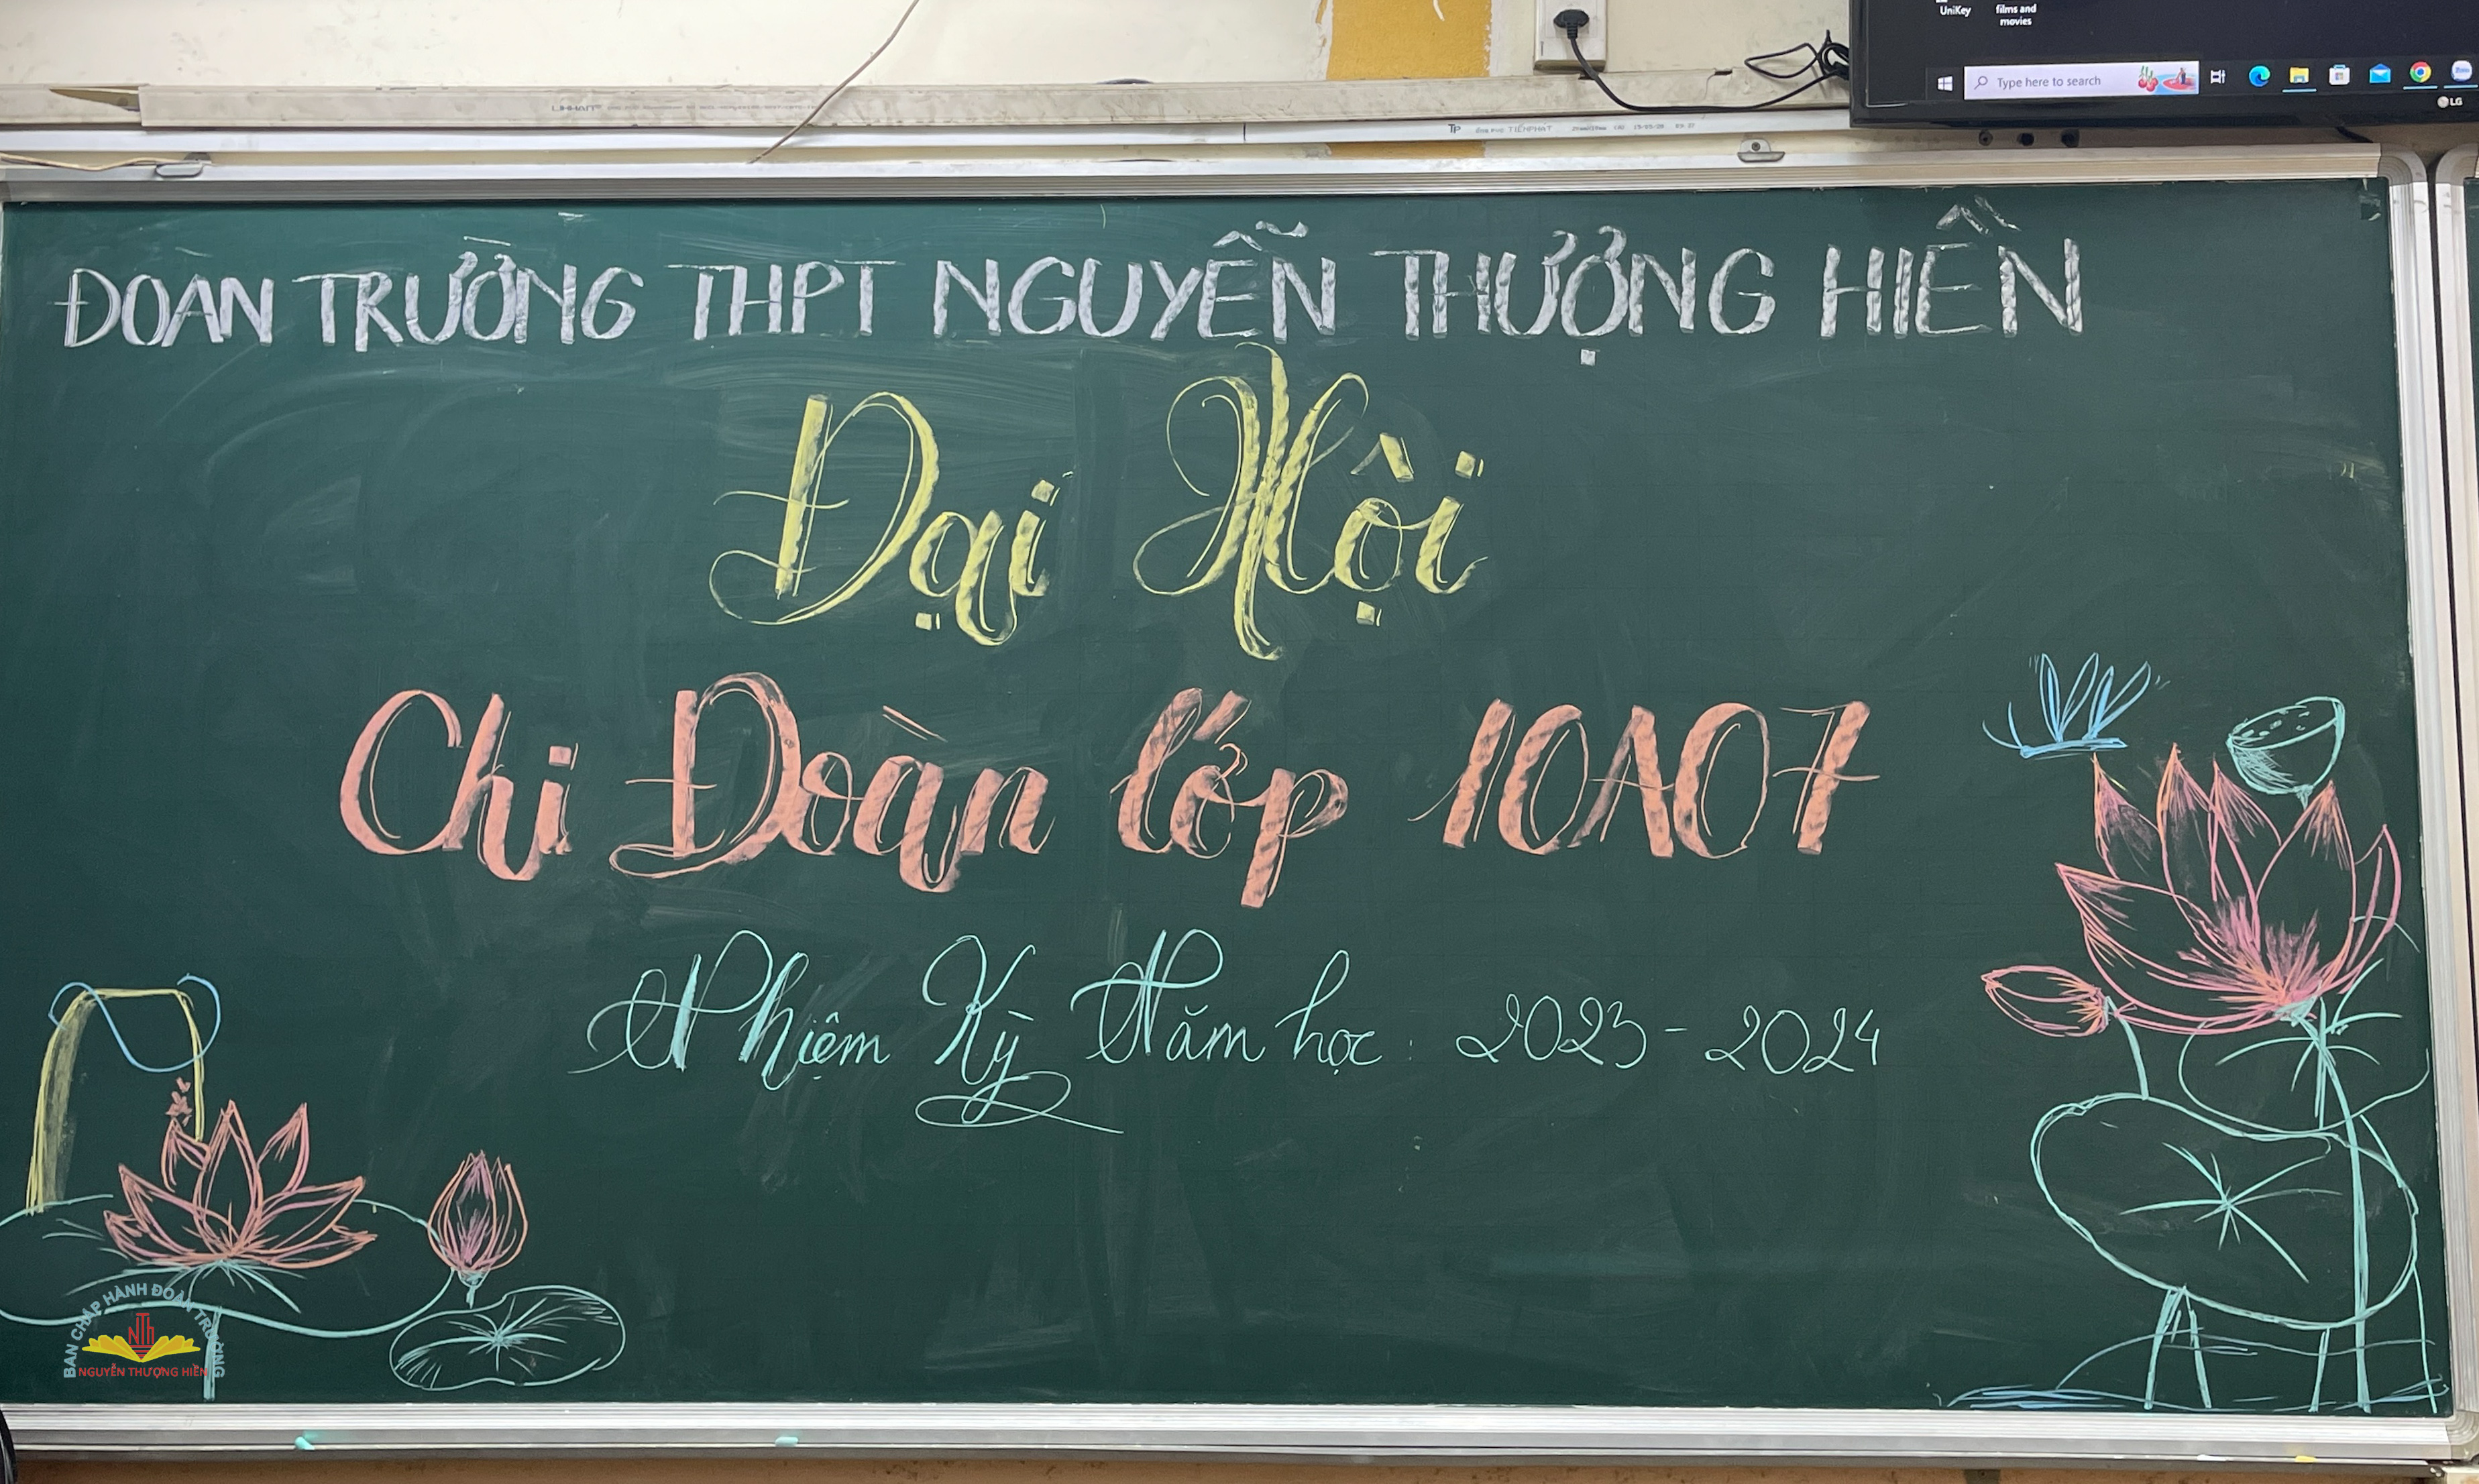 UniKey
films and
movies
Type here to search
LG
TP ỐNG PVC TIẾNPHÁT
ĐOAN TRƯỜNG THPT NGUYỄN THƯỢNG HIỀN
Đại Hội
Chi Đoàn lớp 10A07
Nhiệm Kỳ Năm học : 2023 - 2024
BAN CHẤP HÀNH ĐOÀN TRƯỜNG
NTH
NGUYỄN THƯỢNG HIỀN